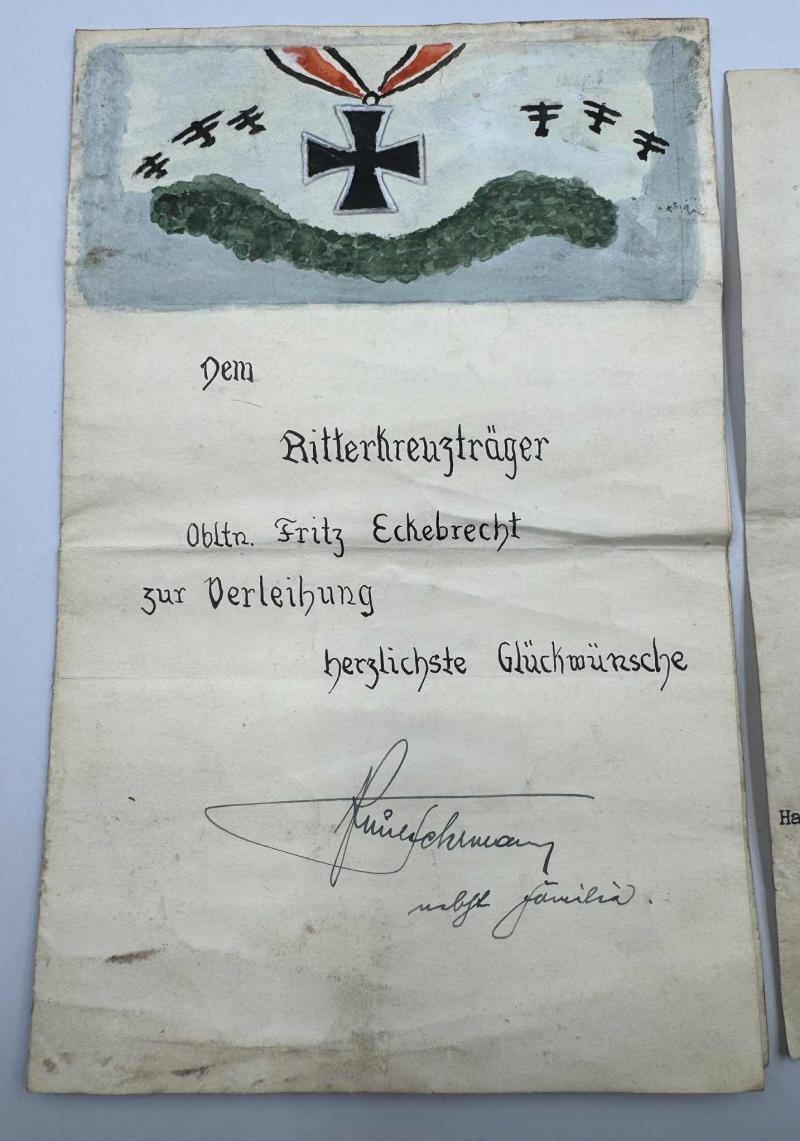 Dem
Ritterkreuzträger
Obltn. Fritz Eckebrecht
zur Verleihung
herzlichste Glückwünsche
nebst Familie.
Ha